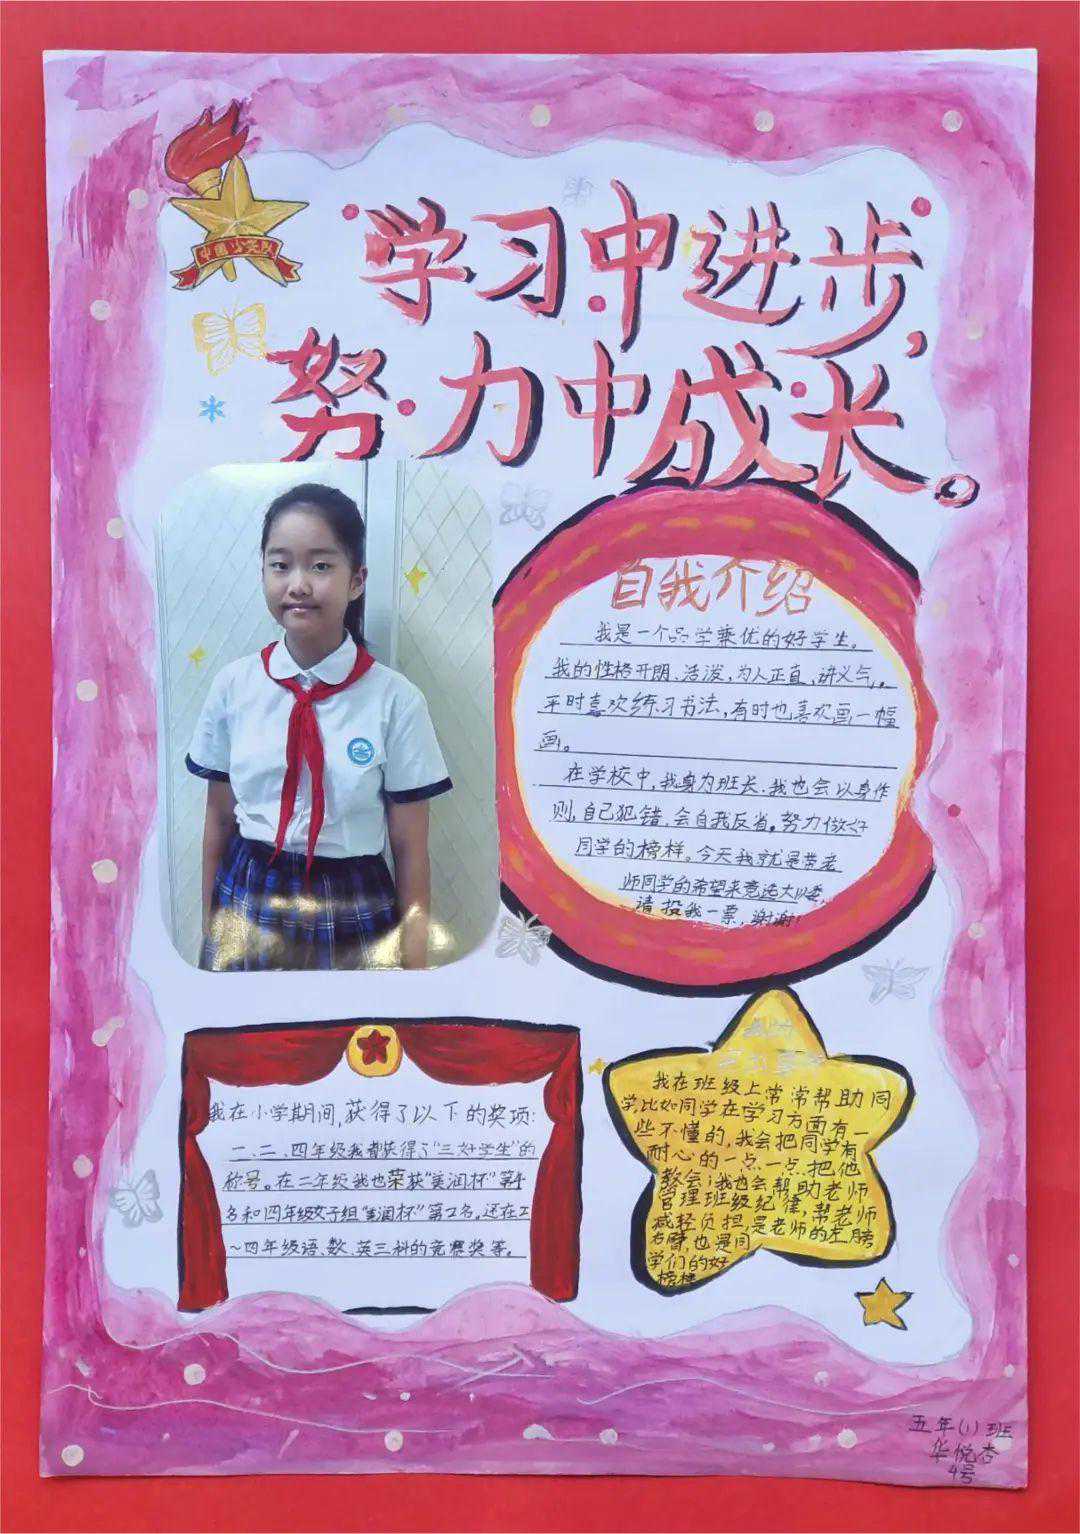 中国少先队
学习中进步,
努力中成长。
自我介绍
我是一个品学兼优的好学生。
我的性格开朗、活泼,为人正直,讲义气。
平时喜欢练习书法,有时也喜欢画一幅
画。
在学校中,我身为班长,我也会以身作
则,自己犯错,会自我反省。努力做好
同学的榜样。今天我就是带老
师同学的希望来竞选大队委,
请投我一票,谢谢!
我在小学期间,获得了以下的奖项:
一、二、四年级我都获得了“三好学生”的
称号。在二年级我也荣获“美润杯”第4
名和四年级女子组“美润杯”第2名。还在2
~四年级语、数、英三科的竞赛奖等。
我在班级上常常帮助同
学,比如同学在学习方面有一
些不懂的,我会把同学有
耐心的一点一点把他
教会;我也会帮助老师
管理班级纪律,帮老师
减轻负担,是老师的左膀
右臂,也是同
学们的好
榜样
五年(1)班
华悦杏
4号